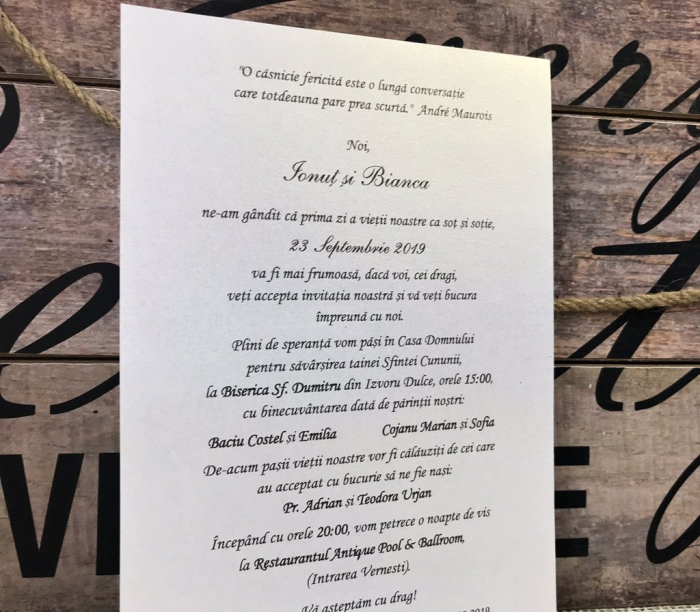 "O căsnicie fericită este o lungă conversație
care totdeauna pare prea scurtă." André Maurois
Noi,
Ionuț și Bianca
ne-am gândit că prima zi a vieții noastre ca soț și soție,
23 Septembrie 2019
va fi mai frumoasă, dacă voi, cei dragi,
veți accepta invitația noastră și vă veți bucura
împreună cu noi.
Plini de speranță vom păși în Casa Domnului
pentru săvârșirea tainei Sfintei Cununii,
la Biserica Sf. Dumitru din Izvoru Dulce, orele 15:00,
cu binecuvântarea dată de părinții noștri:
Baciu Costel și Emilia Cojanu Marian și Sofia
De-acum pașii vieții noastre vor fi călăuziți de cei care
au acceptat cu bucurie să ne fie nași:
Pr. Adrian și Teodora Urjan
Începând cu orele 20:00, vom petrece o noapte de vis
la Restaurantul Antique Pool & Ballroom,
(Intrarea Vernesti).
Vă așteptăm cu drag!
2019